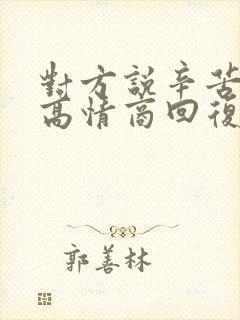 對方説辛苦
高情商回復
郭善林